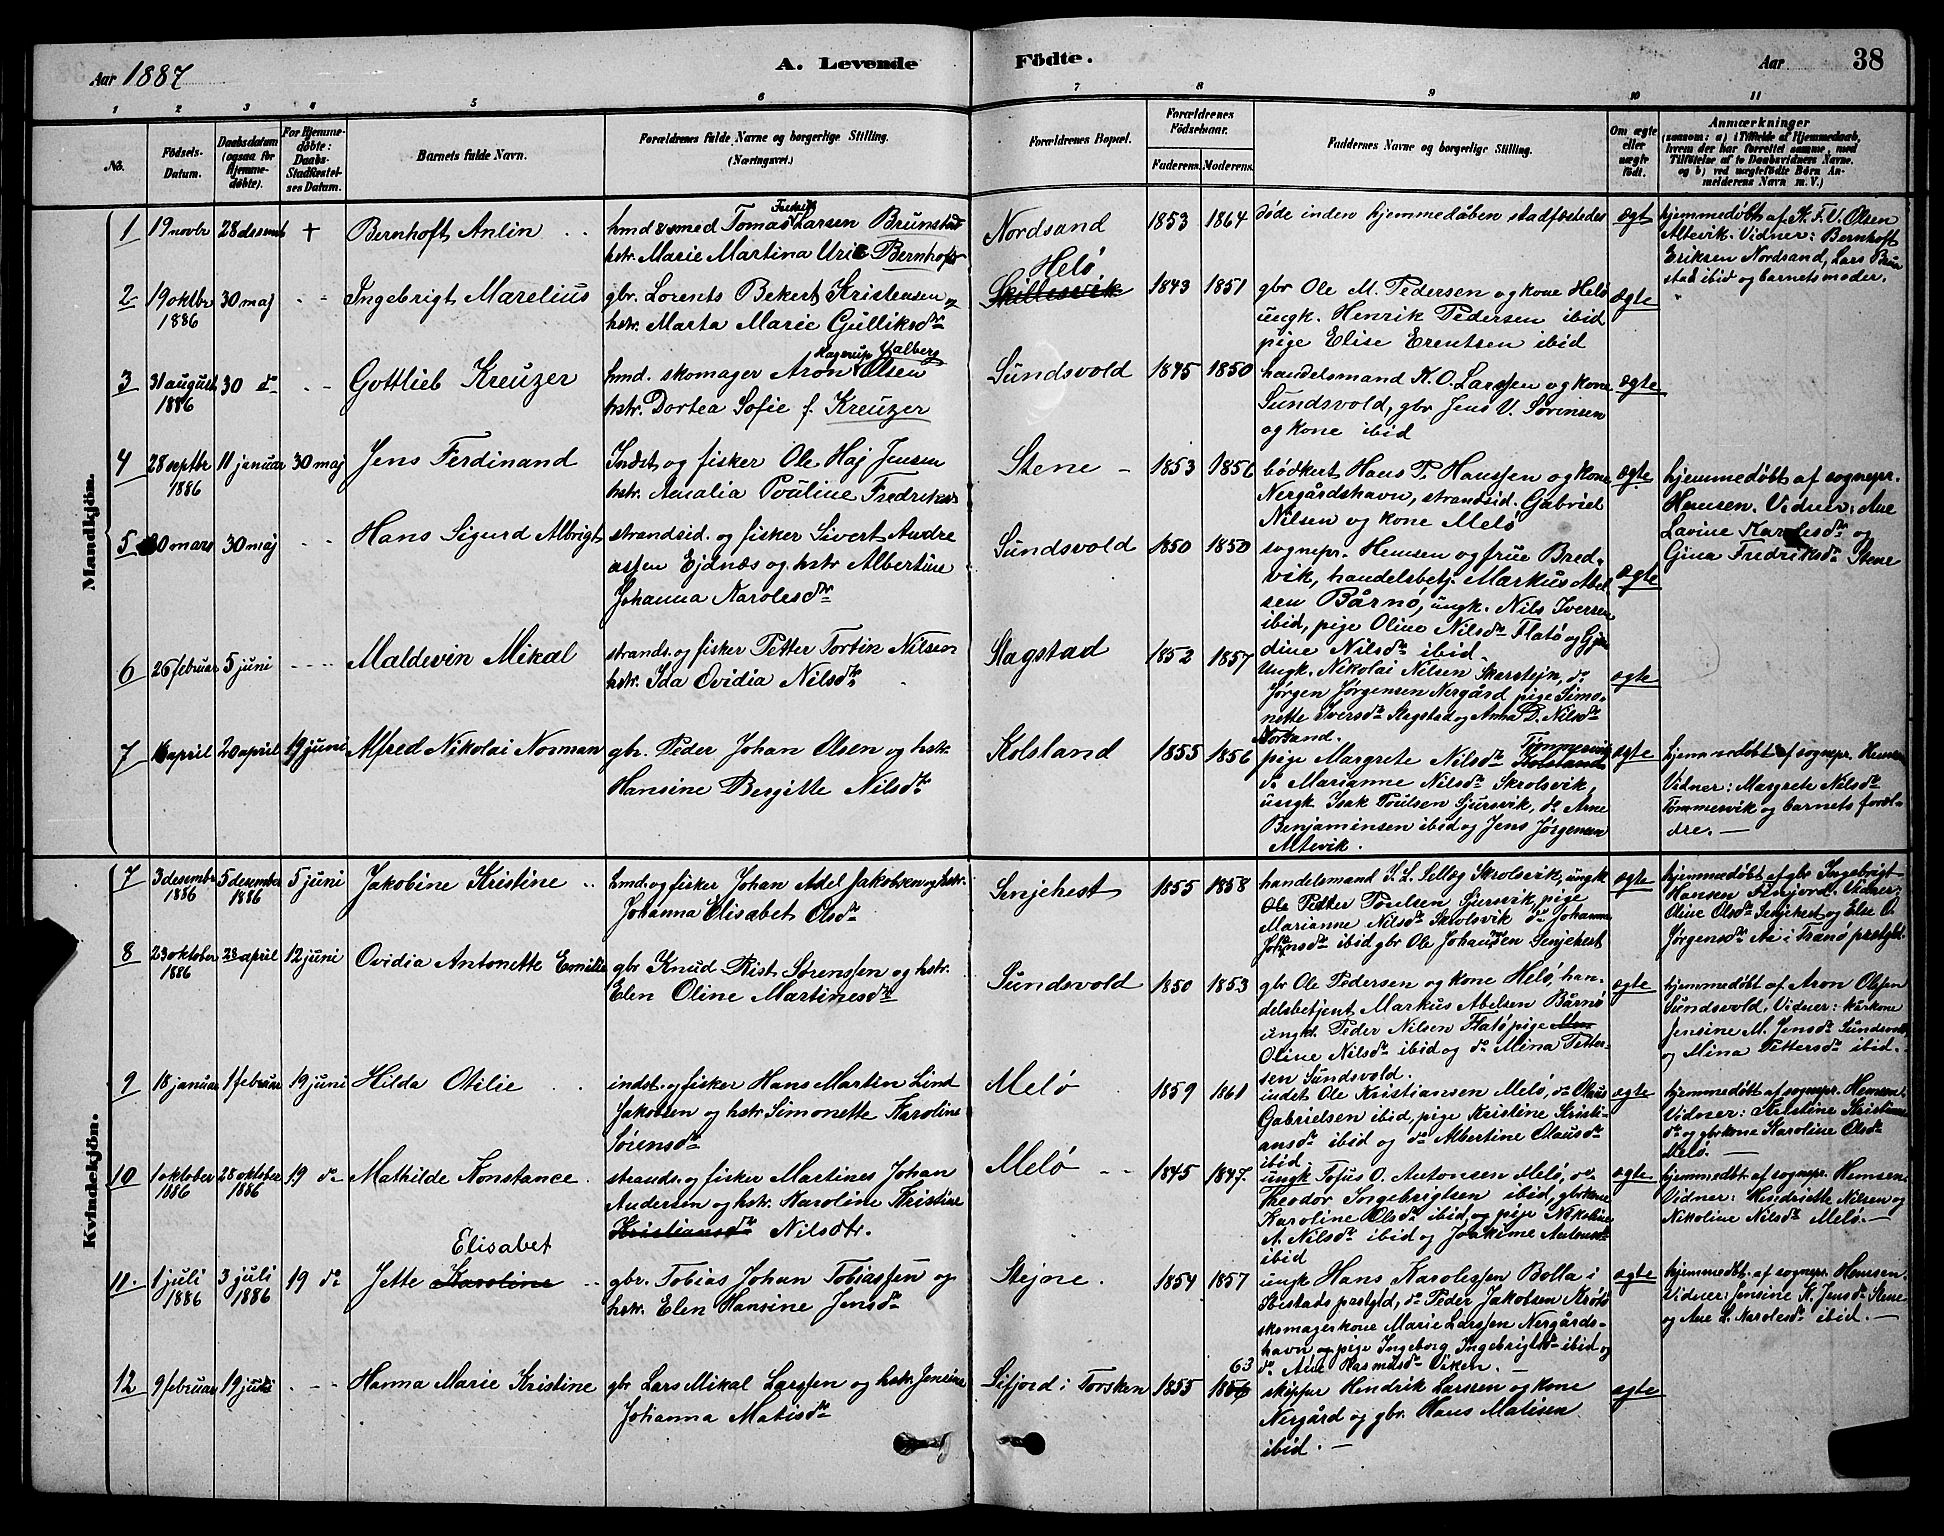 Aar 1887
A. Levende
Födte.
Aar
38
1 2 3 4 5 6 7 8 9 10 11
No.
Födsels-Datum.
Daabsdatum (ogsaa for Hjemme-döbte).
For Hjemme-döbte: Daabs-Stadfæstel-ses Datum.
Barnets fulde Navn.
Forældrenes fulde Navne og borgerlige Stilling. (Næringsvei.)
Forældrenes Bopæl.
Forældrenes Födselsaar.
Faderens. Moderens.
Faddernes Navne og borgerlige Stilling.
Om ægte eller uægte födt.
Anmærkninger
(saasom: a) i Tilfælde af Hjemmedaab, hvem der har forrettet samme, med Tilföielse af to Daabsvidners Navne, og b) ved uægtefödte Börn An-melderens Navn m. V.)
Mandkjön.
1 19 novbr 28 desemb + Bernhoft Anlin
hmd & smed Tomas Fredrik Larsen Brunstad
hstr. Marie Martina Uric Bernhoft
Nordsand 1853 1864 døde inden hjemmedåben stadfæstedes ægt
hjemmedøbt af K. F. V. Olsen
Altevik. Vidner: Bernhoft
Eriksen Nordsand, Lars Brun
stad ibid og barnets moder.
2 19 oktbr 1886 30 maj Ingebrigt Marelius
gbr. Lorents Bekert Kristensen og
hstr. Marta Marie Gulliksdtr
Helø
Skillesvik 1843 1851
gbr Ole M. Pedersen og kone Helø
ungk. Henrik Pedersen ibid
pige Elise Erentsen ibid
ægte
3 31 august 1886 30 do Gottlieb Kreuzer
hmd. skomager Aron Hagerup Valberg Olsen
hstr. Dortea Sofie f. Kreuzer
Sundsvold 1845 1850
handelsmand K. O. Larssen og kone
Sundsvold, gbr Jens V. Sørensen
og kone ibid
ægte
4 28 septbr 1886 11 januar 30 maj Jens Ferdinand
Indst og fisker Ole Haj Jensen
hstr. Amalia Pouline Fredriksd
Stene 1853 1856
bødkert Hans P. Hanssen og kone
Nergårdshavn, strandsid. Gabriel
Nilsen og kone Melø
ægte
hjemmedøbt af sognepr.
Hemsen. Vidner: Ane
Lavine Karolesdtr og
Gina Fredriksdtr Stene
5 20 mars 30 maj Hans Sigurd Albrigt
strandsid. og fisker Sivert Andre
assen Ejdnæs og hstr Albertine
Johanna Karolesdtr
Sundsvold 1850 1850
sognepr. Hemsen og frue Bred-
vik, handelsbetj. Markus Abel
sen Bårnø, ungk. Nils Iversen
ibid, pige Oline Nilsdtr Flatø og Gjer
dine Nilsdtr ibid
ægte
6 26 februar 5 juni Maldevin Mikal
strands. og fisker Petter Tortin Nilsen
hstr. Ida Ovidia Nilsdtr
Slagstad 1852 1857
Ungk. Nikolai Nilsen Skarstejn, do
Jørgen Jørgensen Nergård, pige Simo-
nette Iversdtr Slagstad og Anna D. Nilsdtr
Norsand.
ægte
7 6 april 20 april 19 juni Alfred Nikolai Norman
gbr. Peder Johan Olsen og hstr.
Hansine Bergitte Nilsdtr
Kolsland 1855 1856
pige Margrete Nilsdtr Tømmervik Kolsland
do Marianne Nilsdtr Skrolsvik,
ungk Isak Poulsen Sjursvik, do Arne
Benjaminsen ibid og Jens Jørgensen
Altevik.
ægte
hjemmedøbt af sognepr. Hemsen
Vidner: Margrete Nilsdtr
Tømmesvik og barnets foræl-
dre.
Kvindekjön.
7 3 desembr 1886 5 desember 1886 5 juni Jakobine Kristine
hmd. og fisker Johan Adel Jakobsen og hstr.
Johanna Elisabet Olsdtr
Senjehest 1855 1858
handelsmand S. L. Selleg Skrolsvik, ungk
Ole Petter Poulsen Sjursvik, pige
Marianne Nilsdtr Skrolsvik do Johanna
Johansdtr ibid gbr Ole Johansen Senjehest
ægte
hjemmedøbt af gbr Ingebrigt
Hansen Finjord. Vidner:
Oline Olsdtr Senjehest og Else O.
Jørgensdtr Aa i Tranø præstgld.
8 23 oktober 1886 23 april 12 juni Ovidia Antonette Emilie
gbr Knud Rist Sørenssen og hstr.
Elen Oline Martinesdtr
Sundsvold 1850 1853
gbr Ole Pedersen og kone Helø, han-
delsbetjent Markus Abelsen Bårnø
ungk. Peder Nilsen Flatø pige
Oline Nilsdtr ibid og do Mina Petter-
sen Sundsvold.
ægte
hjemmedøbt af Aron Olssen
Sundsvold. Vidner: kårkone
Jensine M. Jensdtr Sundsvold,
og Mina Pettersdtr ibid.
9 18 januar 1 februar 19 juni Hilda Otilie
indst. og fisker Hans Martin Lind
Jakobsen og hstr Simonette Karoline
Sørensdtr
Melø 1859 1861
indst Ole Kristiansen Melø, do Olaus
Gabrielsen ibid, pige Kristine Kristi-
ansdtr ibid og do Albertine Olausdtr
ibid
ægte
hjemmedøbt af sognepr. Hemsen
Vidner: Kristine Kristians
dtr og gbrkone Karoline Olsdtr
Melø.
10 1 oktober 1886 28 oktober 1886 19 do Mathilde Konstance
strands. og fisker Martines Johan
Andersen og hstr. Karoline Kristine
Kristiansdtr Nilsdtr.
Melø 1845 1847
ungk Tofus O. Antonsen Melø, do
Theodor Ingebrigtsen ibid, gbrkone
Karoline Olsdtr ibid, og pige Nikoline
A. Nilsdtr ibid og Joakime Antonsdtr
ibid
ægte
hjemmedøbt af sognepr. Hemsen
Vidner: Hendriette Nilsen og
Nikoline Nilsdtr Melø.
11. 1 juli 1886 3 juli 1886 19 do Jette Karoline Elisabet
gbr. Tobias Johan Tobiassen og
hstr. Elen Hansine Jensdtr
Stejne. 1854 1857
ungk Hans Karolessen Bolla i
Ibestads præstgld, do Peder Jakobsen Krøtø
skomagerkone Marie Larssen Nergårds-
havn og pige Ingeborg Ingebrigtsdtr ibid og
do Ane Rasmusdtr Viken.
ægte
hjemmedøbt af sognepr. Hemsen.
Vidner: Jensine K. Jensdtr Stene
og Ane L. Karolesdtr ibid.
12 9 februar 19 juni Hanna Marie Kristine
gbr Lars Mikal Larssen og hstr Jensine
Johanna Matisdtr
Sifjord i Torsken 1855 1856 63
skipper Hendrik Larssen og kone
Nergård og gbr. Hans Matisen
ibid.
ægte